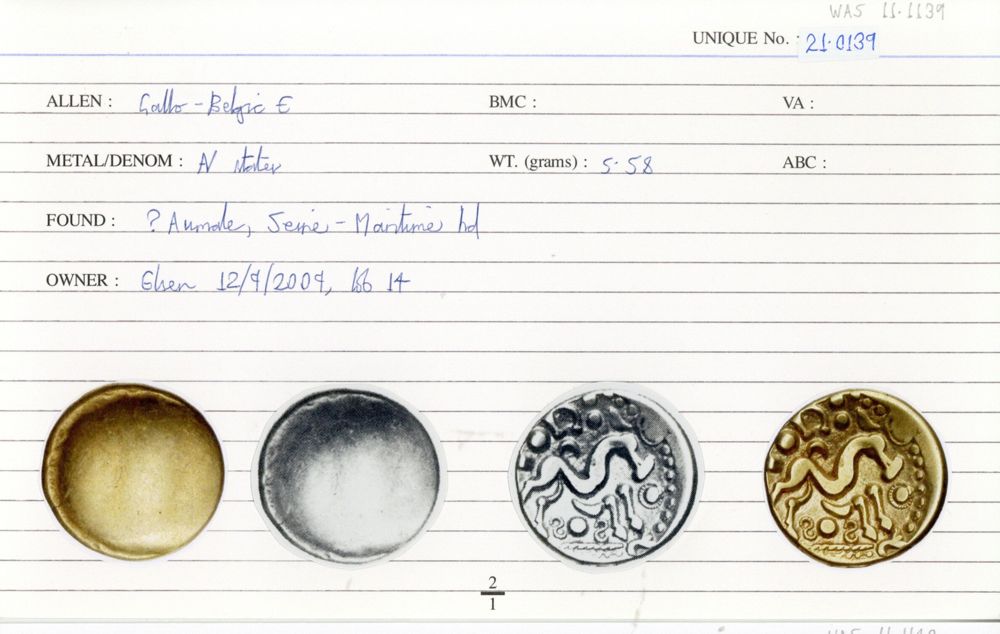 WAS 11.1139
UNIQUE No. : 21.0139
ALLEN : Gallo-Belgic E BMC : VA :
METAL/DENOM : N stater WT. (grams) : 5.58 ABC :
FOUND : ? Aumale, Seine-Maritime hd
OWNER : Elsen 12/9/2009, lot 14
2
1